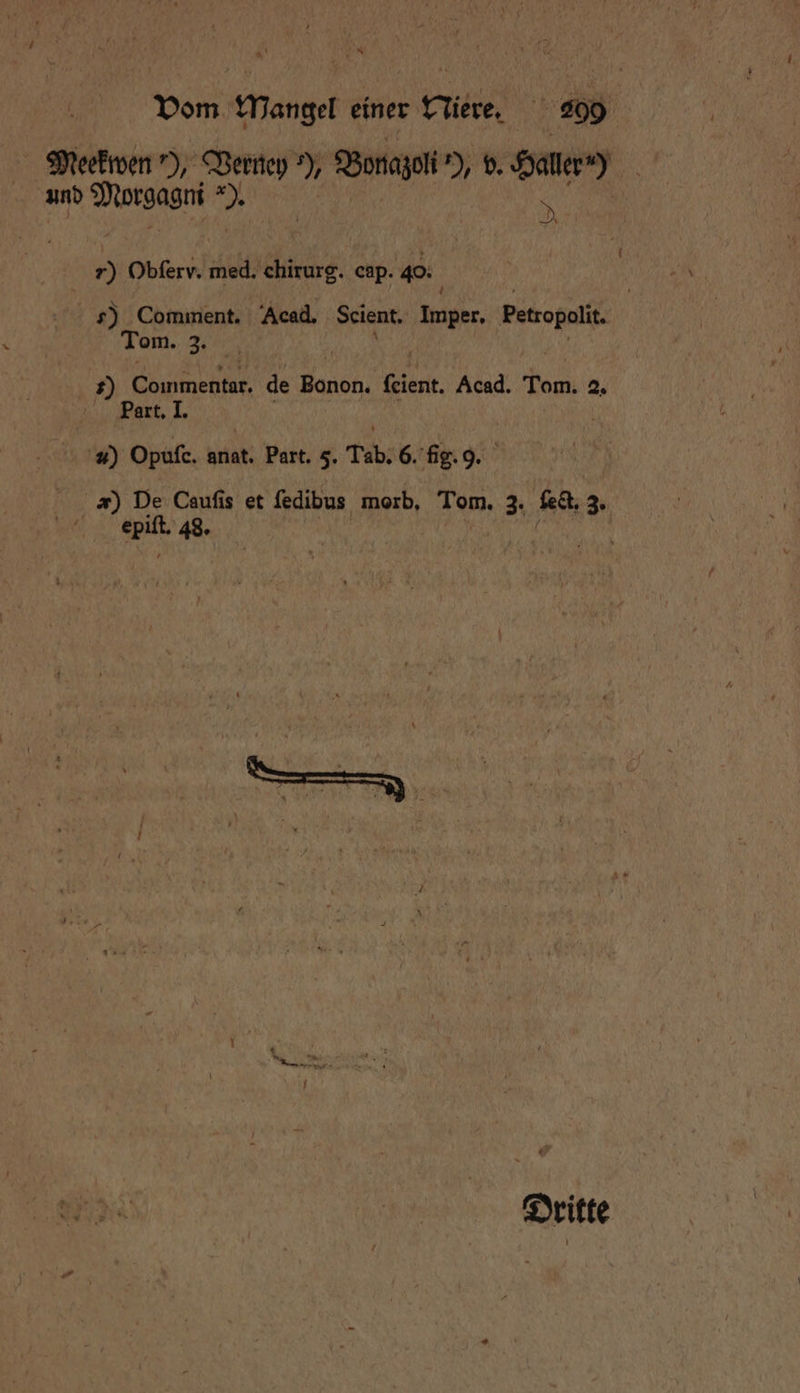 Vom Mangel einer Niere. 299
Meekwen r), Verney s), Bonazoli t), v. Haller u)
und Morgagni x).
r) Obſerv. med. chirurg. cap. 40.
s) Comment. Acad. Scient. Imper. Petropolit.
Tom. 3.
t) Commentar. de Bonon. ſcient. Acad. Tom. 2.
Part. I.
u) Opuſc. anat. Part. 5. Tab. 6. fig. 9.
x) De Cauſis et ſedibus morb. Tom. 3. ſect. 3.
epiſt. 48.
Dritte